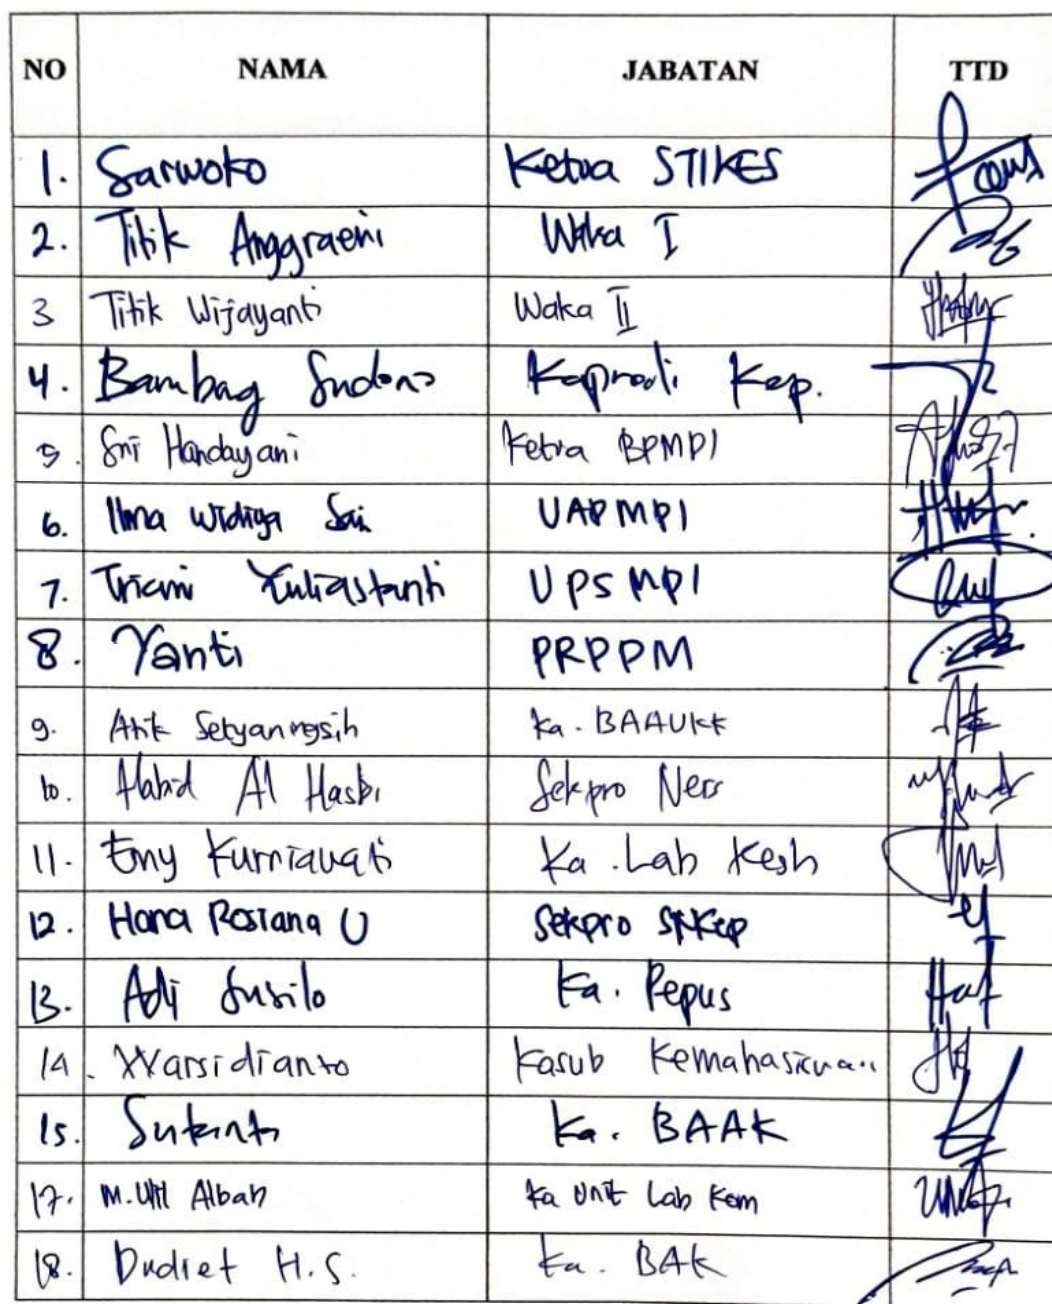 NO NAMA JABATAN TTD
1. Sarwoko Ketua STIKES
2. Titik Anggraeni Waka I
3 Titik Wijayanti Waka II
4. Bambag Sudono Kaprodi Kep.
5. Sri Handayani Ketua BPMPI
6. Ilma Widiya Sari UAPMPI
7. Triani Yuliastanti UPSMPI
8. Yanti PRPPM
9. Atik Setyaningsih Ka. BAAUKK
10. Habid Al Hasbi Sekpro Ners
11. Eny Kurniawati Ka. Lab Kesh
12. Hana Rosiana U Sekpro S1Kep
13. Adi Susilo Ka. Pepus
14. Warsidianto Kasub Kemahasiswaan
15. Ka. BAAK
17. M. Ulil Albab Ka Unit Lab Kom
18. Dudiet H.S. Ka. BAK